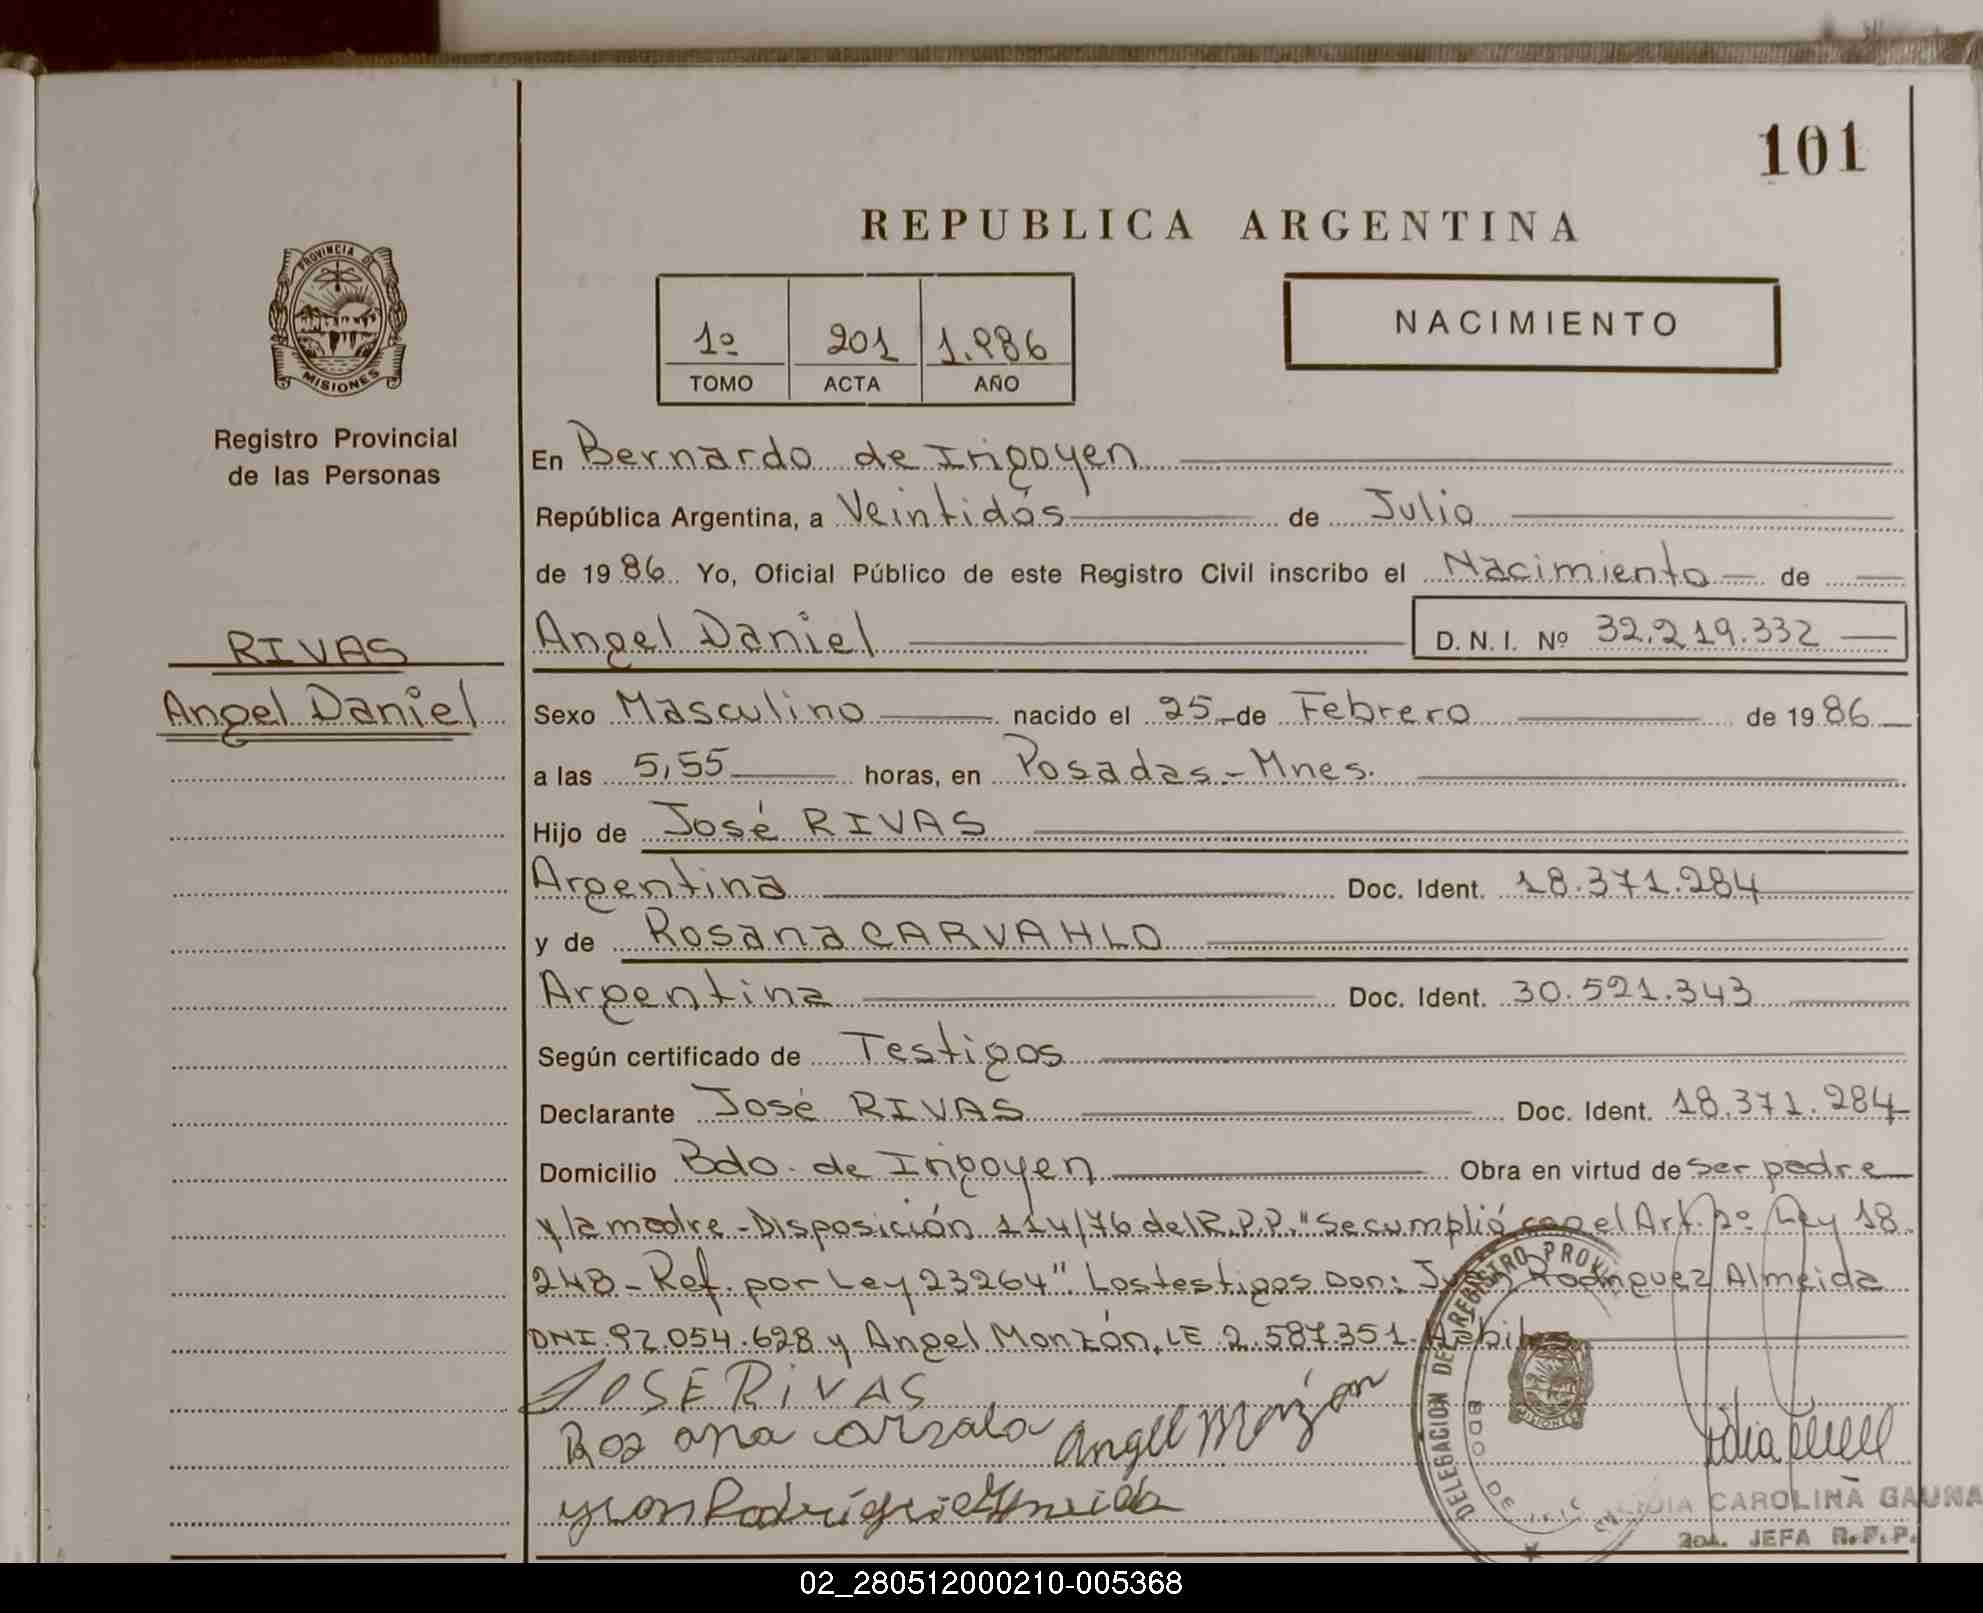 101
REPUBLICA ARGENTINA
PROVINCIA DE
MISIONES
Registro Provincial
de las Personas
1º 201 1.986
TOMO ACTA AÑO
NACIMIENTO
En Bernardo de Irigoyen
República Argentina, a Veintidós de Julio
de 1986 Yo, Oficial Público de este Registro Civil inscribo el Nacimiento de
RIVAS
Angel Daniel
Angel Daniel D.N.I. Nº 32.219.332
Sexo Masculino nacido el 25 de Febrero de 1986
a las 5,55 horas, en Posadas - Mnes.
Hijo de José RIVAS
Argentina Doc. Ident. 18.371.284
y de Rosana CARVAHLO
Argentina Doc. Ident. 30.521.343
Según certificado de Testigos
Declarante José RIVAS Doc. Ident. 18.371.284
Domicilio Bdo. de Irigoyen Obra en virtud de ser padre
y la madre - Disposición 114/76 del R.P.P. "Se cumplió con el Art. 2º Ley 18.
248 - Ref. por Ley 23264". Los testigos Don: Juan Rodriguez Almeida
DNI. 92.054.628 y Angel Monzón, LE 2.587.351. Hábiles
JOSE RiVAS
Angel Monzón
DELEGACION DEL REGISTRO
BDO DE
LIDIA CAROLINA GAUNA
JEFA R.P.P.
02_280512000210-005368